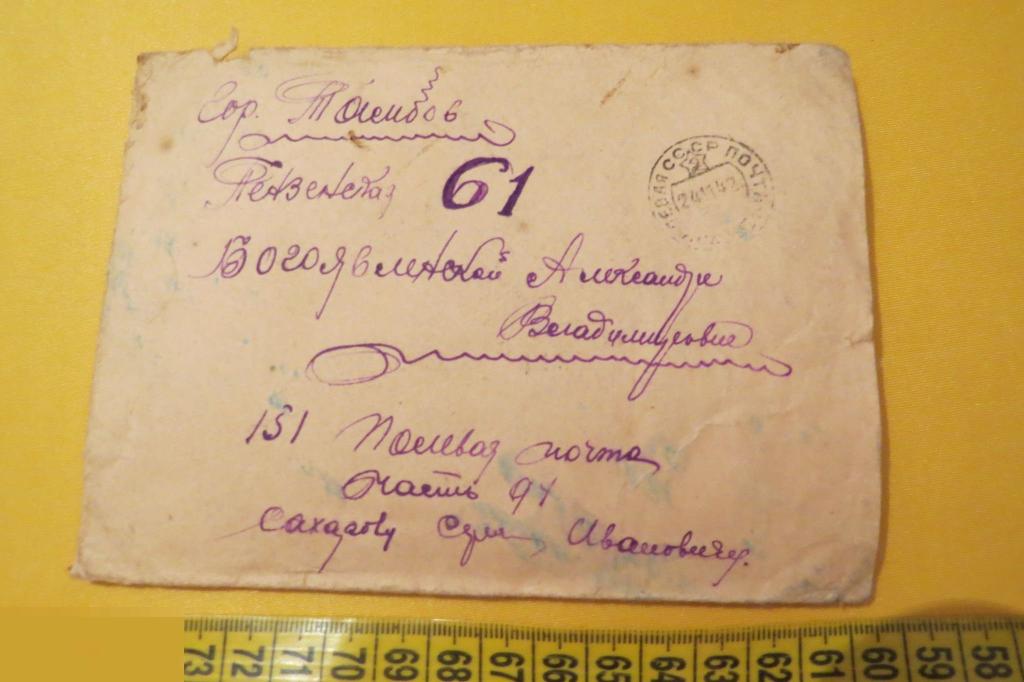 Гор. Тамбов
Пензенская 61
СССР ПОЧТА
24 11 42
Богоявленской Александре
Владимировне
151 Полевая почта
часть 91
Сахарову Ивановичу.
73 72 71 70 69 68 67 66 65 64 63 62 61 60 59 58